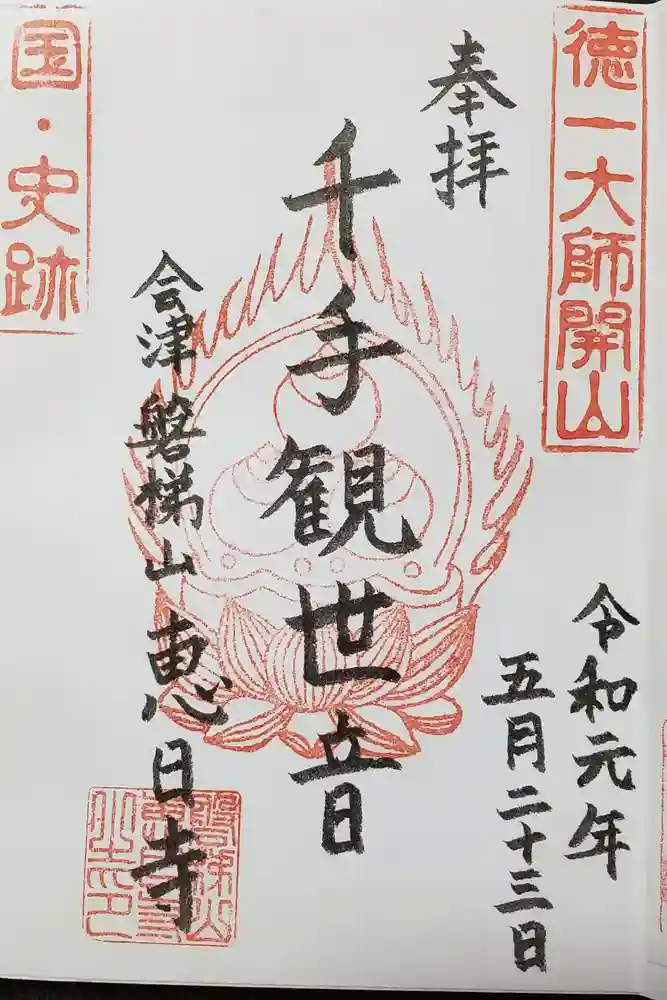 徳一大師開山
奉拝
令和元年
五月二十三日
千手観世音
会津磐梯山恵日寺
国・史跡
磐梯山
恵日寺